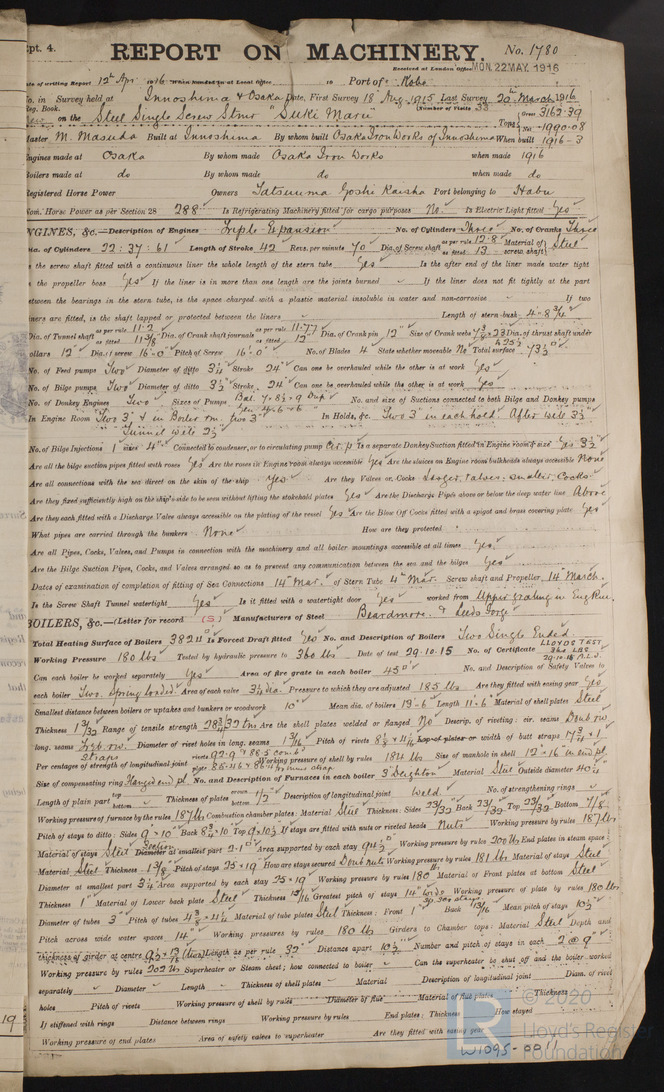 pt. 4.
REPORT ON MACHINERY.
No. 1780
Received at London Office MON 22 MAY. 1916
Date of writing Report 12th Apr 1916 When handed in at Local Office 10 Port of Kobe
No. in Survey held at Innoshima & Osaka Date, First Survey 18 Aug 1915 Last Survey 20th March 1916
Reg. Book. (Number of Visits 33
on the Steel Single Screw Stmr Suki Maru Tons Gross 3162.39 Net 1990.08
Master M. Masuda Built at Innoshima By whom built Osaka Iron Works of Innoshima When built 1916-3
Engines made at Osaka By whom made Osaka Iron Works when made 1916
Boilers made at do By whom made do when made do
Registered Horse Power Owners Tatsuuma Goshi Kaisha Port belonging to Habu
Nom. Horse Power as per Section 28 288 Is Refrigerating Machinery fitted for cargo purposes No. Is Electric Light fitted Yes
ENGINES, &c.—Description of Engines Triple Expansion No. of Cylinders Three No. of Cranks Three
Dia. of Cylinders 22:37:61 Length of Stroke 42 Revs. per minute 70 Dia. of Screw shaft as per rule 12.8" as fitted 13 Material of screw shaft Steel
Is the screw shaft fitted with a continuous liner the whole length of the stern tube Yes Is the after end of the liner made water tight
in the propeller boss Yes If the liner is in more than one length are the joints burned If the liner does not fit tightly at the part
between the bearings in the stern tube, is the space charged with a plastic material insoluble in water and non-corrosive If two
liners are fitted, is the shaft lapped or protected between the liners Length of stern bush 4'-8 3/4"
Dia. of Tunnel shaft as per rule 11.2 as fitted 11 3/8 Dia. of Crank shaft journals as per rule 11.77 as fitted 12" Dia. of Crank pin 12" Size of Crank webs 7 3/8 x 23 Dia. of thrust shaft under
collars 12" Dia. of screw 16'-0" Pitch of Screw 16'-0" No. of Blades 4 State whether moveable No Total surface 73 1/2
No. of Feed pumps Two Diameter of ditto 3 1/4 Stroke 24" Can one be overhauled while the other is at work Yes
No. of Bilge pumps Two Diameter of ditto 3 1/2 Stroke 24" Can one be overhauled while the other is at work Yes
No. of Donkey Engines Two Sizes of Pumps Bal. 7 . 8 1/2 . 9 Dup No. and size of Suctions connected to both Bilge and Donkey pumps
In Engine Room Two 3" & in Boiler rm. two 3" In Holds, &c. Two 3" in each hold After well 3 1/2
Tunnel well 2 1/2"
No. of Bilge Injections 1 sizes 4" Connected to condenser, or to circulating pump Cir. p Is a separate Donkey Suction fitted in Engine room & size Yes 3 1/2
Are all the bilge suction pipes fitted with roses Yes Are the roses in Engine room always accessible Yes Are the sluices on Engine room bulkheads always accessible None
Are all connections with the sea direct on the skin of the ship Yes Are they Valves or Cocks Larger, valves. smaller, Cocks
Are they fixed sufficiently high on the ship's side to be seen without lifting the stokehold plates Yes Are the Discharge Pipes above or below the deep water line Above
Are they each fitted with a Discharge Valve always accessible on the plating of the vessel Yes Are the Blow Off Cocks fitted with a spigot and brass covering plate Yes
What pipes are carried through the bunkers None How are they protected
Are all Pipes, Cocks, Valves, and Pumps in connection with the machinery and all boiler mountings accessible at all times Yes
Are the Bilge Suction Pipes, Cocks, and Valves arranged so as to prevent any communication between the sea and the bilges Yes
Dates of examination of completion of fitting of Sea Connections 14th Mar. of Stern Tube 4th Mar. Screw shaft and Propeller 14th March.
Is the Screw Shaft Tunnel watertight Yes Is it fitted with a watertight door Yes worked from Upper grating in Eng Rm.
BOILERS, &c.—(Letter for record (S) Manufacturers of Steel Beardmore. & Leeds Forge
Total Heating Surface of Boilers 3824 Is Forced Draft fitted Yes No. and Description of Boilers Two Single Ended.
Working Pressure 180 lbs Tested by hydraulic pressure to 360 lbs Date of test 29.10.15 No. of Certificate LLOYDS TEST 360 LBS 29.10.15
Can each boiler be worked separately Yes Area of fire grate in each boiler 45 No. and Description of Safety Valves to
each boiler Two. Spring loaded. Area of each valve 3 1/4 dia. Pressure to which they are adjusted 185 lbs Are they fitted with easing gear Yes
Smallest distance between boilers or uptakes and bunkers or woodwork 10" Mean dia. of boilers 13'-6 Length 11-6" Material of shell plates Steel
Thickness 1 3/32 Range of tensile strength 28 3/4/32 tns Are the shell plates welded or flanged No Descrip. of riveting: cir. seams Doub row
long. seams Treb. row. Diameter of rivet holes in long. seams 1 3/16 Pitch of rivets 8 1/8 Lap of plates or width of butt straps 17 3/4 x 1
Per centages of strength of longitudinal joint rivets 92.9 plate 85.4 Working pressure of shell by rules 184 lbs Size of manhole in shell 12 x 16" in end pl
Size of compensating ring Flanged end pl. No. and Description of Furnaces in each boiler 3 Deighton Material Steel Outside diameter 40 1/4
Length of plain part top bottom Thickness of plates crown bottom 1/2 Description of longitudinal joint Weld No. of strengthening rings
Working pressure of furnace by the rules 187 lbs Combustion chamber plates: Material Steel Thickness: Sides 23/32 Back 23/32 Top 23/32 Bottom 7/8
Pitch of stays to ditto: Sides 9 x 10" Back 8 3/4 x 10 Top 9 x 10 1/2 If stays are fitted with nuts or riveted heads Nuts Working pressure by rules 187 lbs
Material of stays Steel Diameter at smallest part 2.1 Area supported by each stay 94 1/2 Working pressure by rules 200 lbs End plates in steam space:
Material Steel Thickness 1 3/8 Pitch of stays 25 x 19" How are stays secured Doub nuts Working pressure by rules 181 lbs Material of stays Steel
Diameter at smallest part 3 1/4 Area supported by each stay 25 x 19 Working pressure by rules 180 Material of Front plates at bottom Steel
Thickness 1" Material of Lower back plate Steel Thickness 13/16 Greatest pitch of stays 14" Working pressure of plate by rules 180 lbs
Diameter of tubes 3" Pitch of tubes 4 3/8 x 4 1/4 Material of tube plates Steel Thickness: Front 1" Back 13/16 Mean pitch of stays 10 1/2
Pitch across wide water spaces 14" Working pressures by rules 180 lbs Girders to Chamber tops: Material Steel Depth and
thickness of girder at centre 9 1/2 x 13/16 (two) Length as per rule 32" Distance apart 10 1/2" Number and pitch of stays in each 2 @ 9"
Working pressure by rules 202 lbs Superheater or Steam chest; how connected to boiler Can the superheater be shut off and the boiler worked
separately Diameter Length Thickness of shell plates Material Description of longitudinal joint Diam. of rivet
holes Pitch of rivets Working pressure of shell by rules Diameter of flue Material of flue plates Thickness
If stiffened with rings Distance between rings Working pressure by rules End plates: Thickness How stayed
Working pressure of end plates Area of safety valves to superheater Are they fitted with easing gear
© 2020
Lloyd's Register
Foundation
W1095-0011